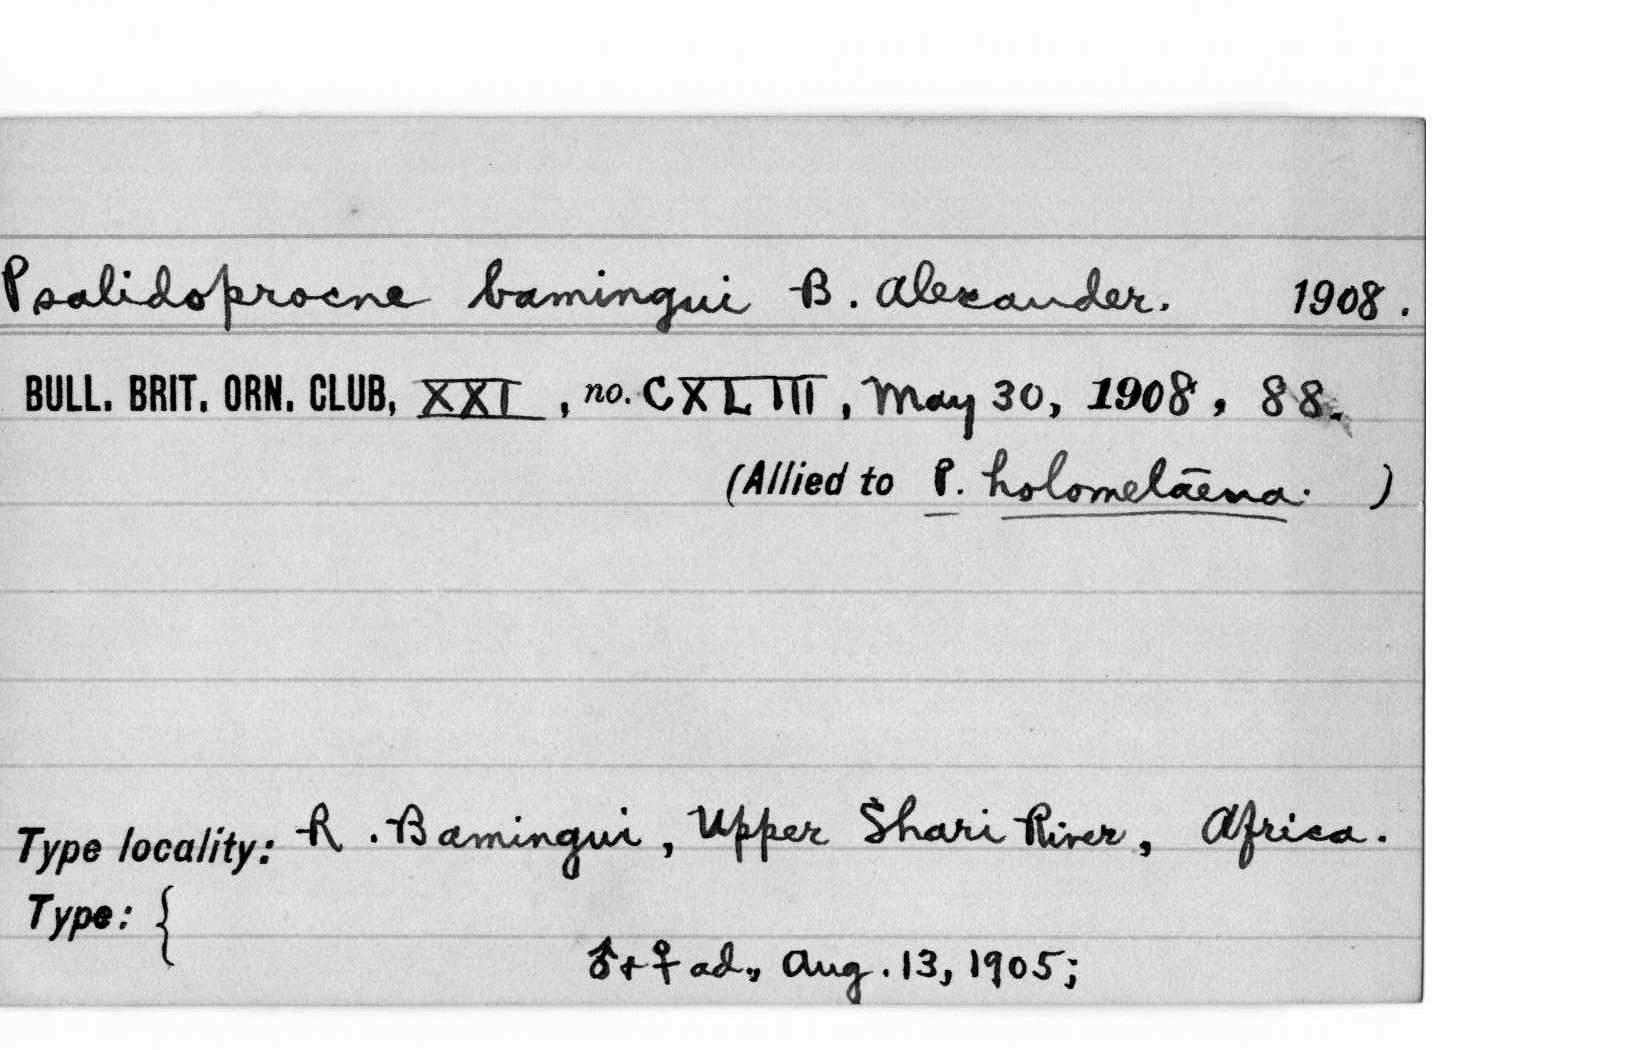 Psalidoprocne bamingui B. Alexander. 1908.
BULL. BRIT. ORN. CLUB, XXI, no. CXLIII, May 30, 1908, 88.
(Allied to P. holomelāena. )
Type locality: R. Bamingui, Upper Shari River, Africa.
Type: {
♂+♀ ad., Aug. 13, 1905;